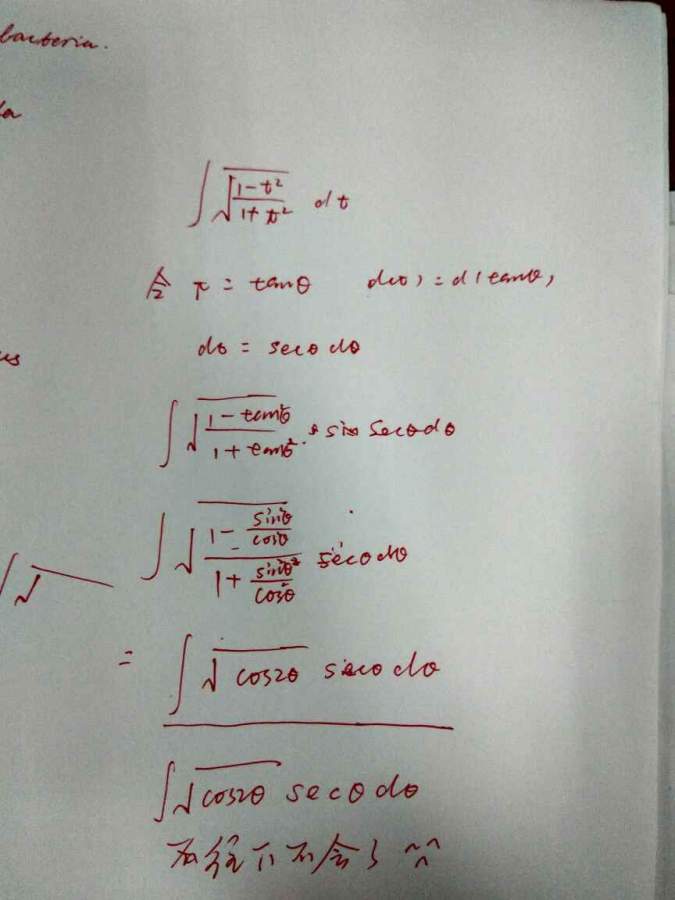 bacteria.
∫ √((1-t²)/(1+t²)) dt
令 t = tanθ d(t) = d(tanθ)
dt = secθ dθ
∫ √((1-tan²θ)/(1+tan²θ)) · secθ dθ
∫ √((1-sin²θ/cos²θ)/(1+sin²θ/cos²θ)) secθ dθ
∫ √
= ∫ √cos2θ secθ dθ
∫ √cos2θ secθ dθ
再往下不会了